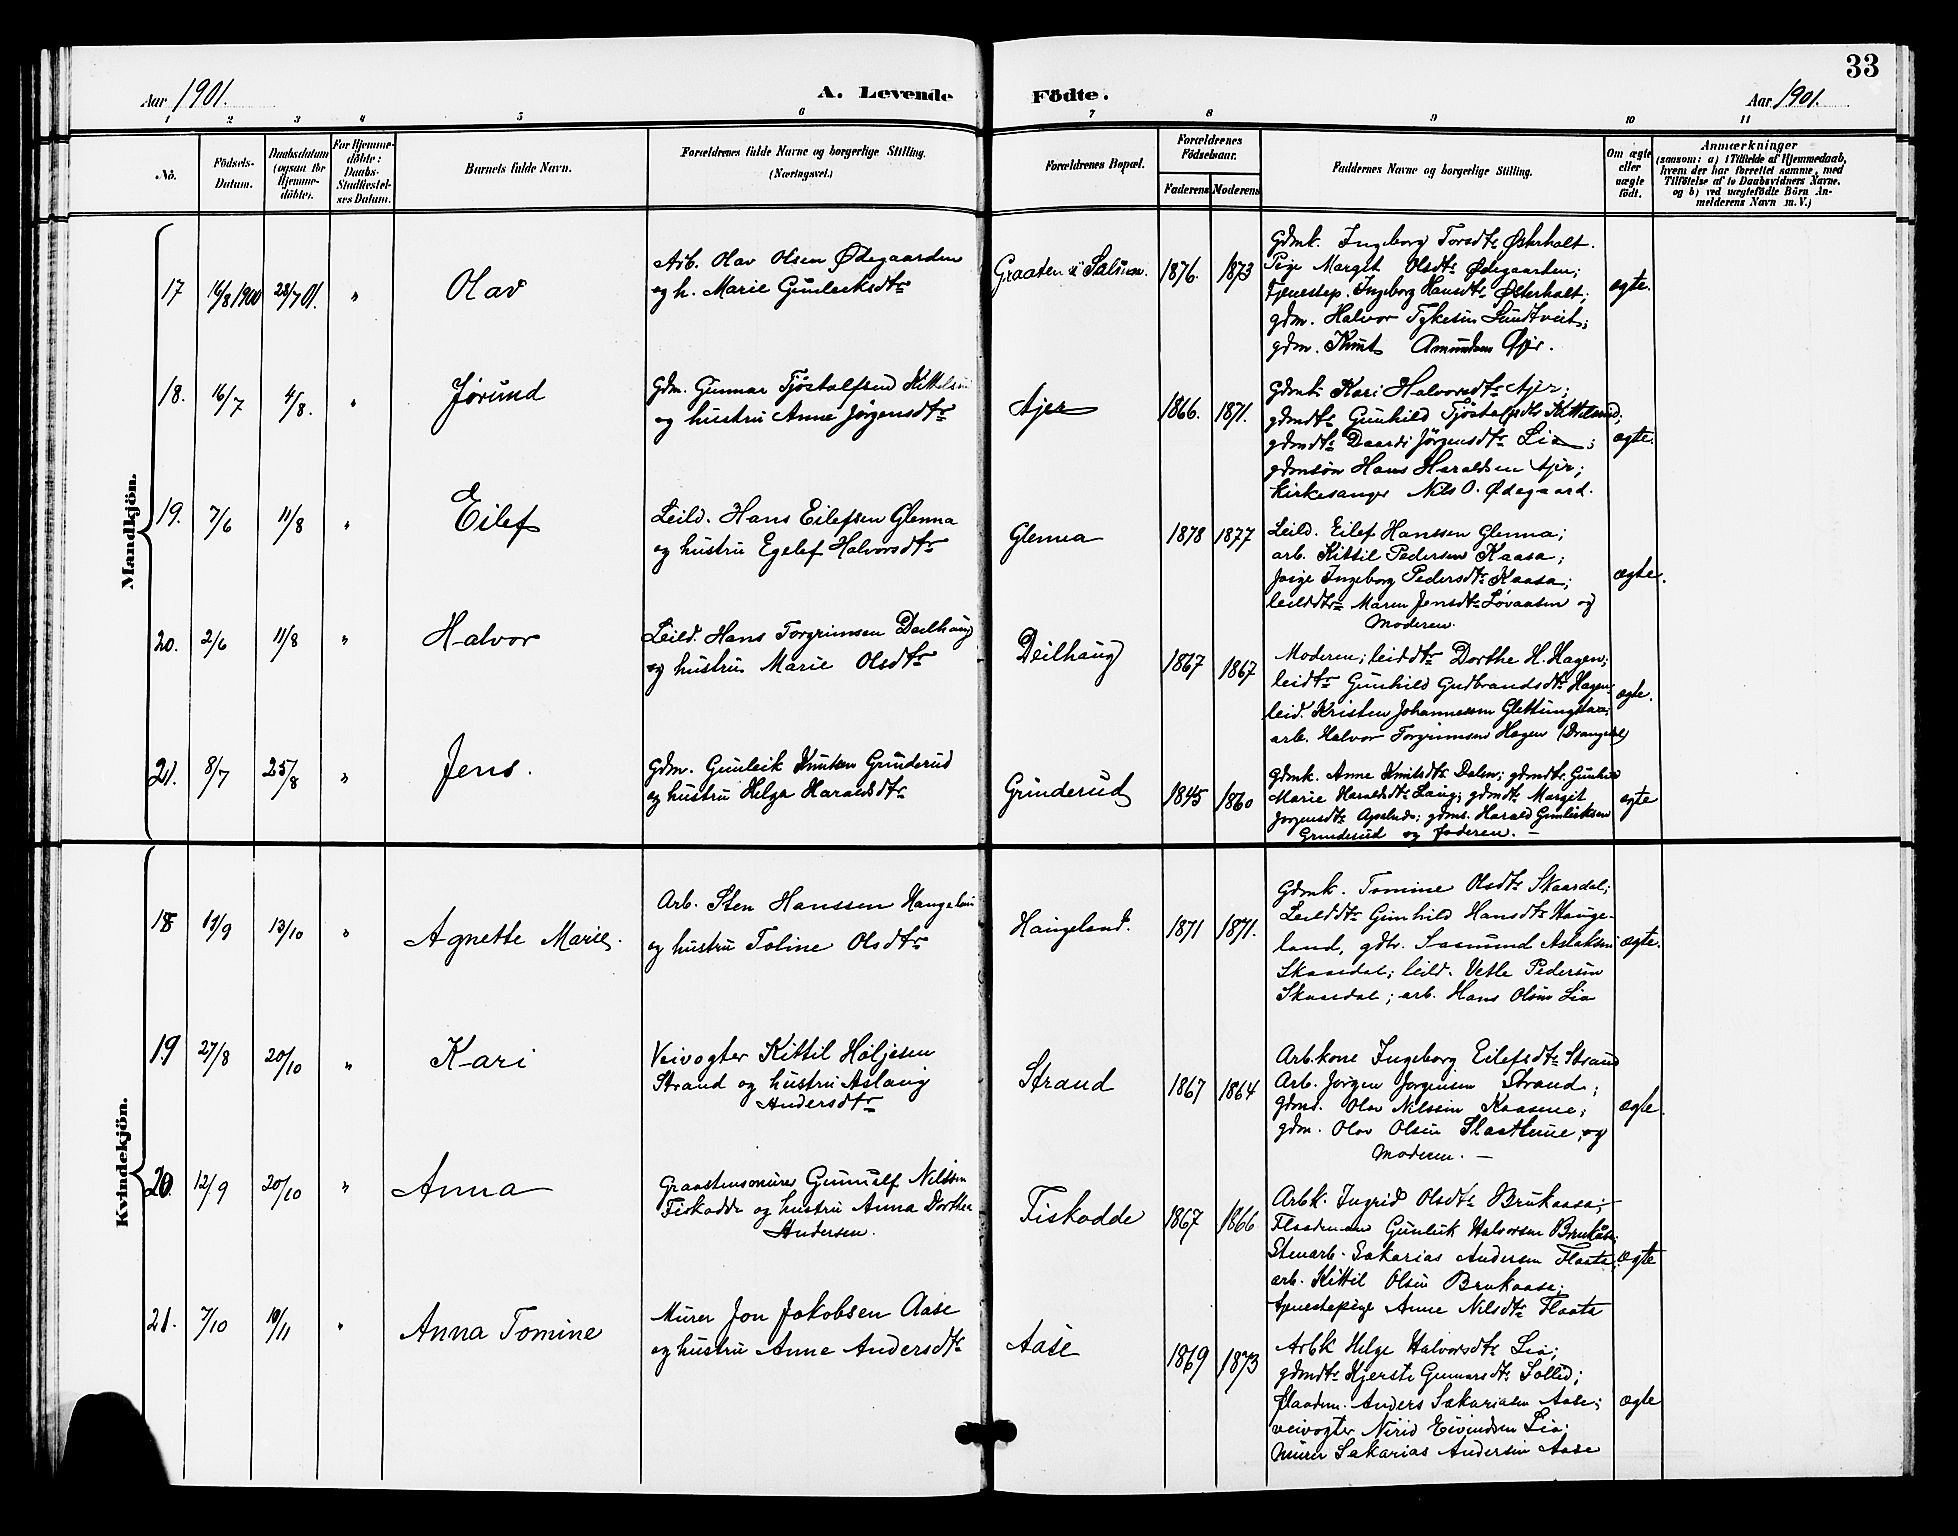 33
Aar 1901.
A. Levende Födte.
Aar 1901.
1 2 3 4 5 6 7 8 9 10 11
No.
Födsels-
Datum.
Daabsdatum
(ogsaa for
Hjemme-
döbte).
For Hjemme-
döbte:
Daabs-
Stadfæstel-
ses Datum.
Barnets fulde Navn.
Forældrenes fulde Navne og borgerlige Stilling.
(Næringsvei.)
Forældrenes Bopæl.
Forældrenes
Födselsaar.
Faderens Moderens
Faddernes Navne og borgerlige Stilling.
Om ægte
eller
uægte
födt.
Anmærkninger
(saasom: a) i Tilfælde af Hjemmedaab,
hvem der har forrettet samme, med
Tilföielse af to Daabsvidners Navne,
og b) ved uægtefödte Börn An-
melderens Navn m. V.)
Mandkjön.
17 16/8 1900 28/7 01. " Olav
Arb. Olav Olsen Ødegaarden
og h. Marie Gunleiksdtr
1876. 1873
Gdmk. Ingeborg Torsdtr Østerholt.
Pige Margit Olsdtr Ødegaarden;
Tjenestep. Ingeborg Hansdtr Østerholt;
gdm. Halvor Tykesen Sundtveit;
gdm. Knut Amundsen
ægte.
18. 16/7 4/8. " Jørund
Gdm. Gunnar Tjøstolfsen
og hustru Anne Jørgensdtr
Ajer 1866. 1871.
Gdmk. Kari Halvorsdtr Ajer;
gdmdtr Gunhild Tjøstolfsdtr
gdmdtr Jørgensdtr Lia;
gdmsøn Hans Haraldsen Ajer;
kirkesanger Nils O. Ødegaard.
ægte.
19. 7/6 11/8 " Eilef
Leild. Hans Eilefsen Glenna
og hustru Egelef Halvorsdtr
Glenna 1878 1877
Leild. Eilef Hanssen Glenna;
arb. Kittil Pedersen Kaasa;
pige Ingeborg Pedersdtr Kaasa;
leilddtr Maren Jensdtr Løvaasen og
Moderen.
ægte.
20. 2/6 11/8 " Halvor
Leild. Hans Torgrimsen Deilhaug
og hustru Marie Olsdtr
Deilhaug 1867 1867
Moderen; leiddtr Dorthe H. Hagen;
leidtr Gunhild Gudbrandsdtr Hagen;
leid. Kristen Johannessen
arb. Halvor Torgrimsen Hagen (Drangedal)
ægte.
21. 8/7 25/8 " Jens.
Gdm. Gunleik Knutsen Grinderud
og hustru Helga Haraldsdtr
Grinderud 1845 1860
Gdmk. Anne Knutsdtr Dalen; gdmdtr. Gunhild
Marie Haraldsdtr gdmdtr Margit
Jørgensdtr gdms. Harald Gunleiksen
Grinderud og faderen. –
ægte
Kvindekjön.
18 11/9 13/10 " Agnette Marie.
Arb. Sten Hanssen Haugeland
og hustru Toline Olsdtr
Haugeland. 1871 1871.
Gdmk. Tomine Olsdtr Skaardal;
Leilddtr Gunhild Hansdtr Hauge-
land, Aslaksen
Skaardal; leild. Vetle Pedersen
Skaardal; arb. Hans Olsen Lia
ægte.
19 27/8 20/10 " Kari
Veivogter Kittil Høljesen
Strand og hustru Aslaug
Andersdtr
Strand 1867 1864
Arb.kone Ingeborg Eilefsdtr Strand
Arb. Jørgen Jørgensen Strand;
Olav Nilssen Kaasene;
gdm. Olav Olsen og
Moderen. –
ægte.
20. 12/9 20/10 " Anna
Graastensmurer Gunnulf Nilssen
Fiskodde og hustru Anna Dorthea
Andersen.
Fiskodde 1867 1866
Arbk. Ingrid Olsdtr Brukaasa;
Gunleik Halvorsen
Stenarb. Sakarias Andersen Flaata;
arb. Kittil Olsen Brukaasa;
tjenestepige Anne Nilsdtr Flaata
ægte
21. 7/10 10/11 " Anna Tomine
Murer Jon Jakobsen Aase
og hustru Anne Andersdtr
Aase 1869 1873
Arbk Helge Halvorsdtr Lia;
gdmdtr Kjersti Gunnarsdtr Sollid;
Anders Sakariasen Aase;
veivogter Nirid Eivindsen Lia;
murer Sakarias Andersen Aase
ægte